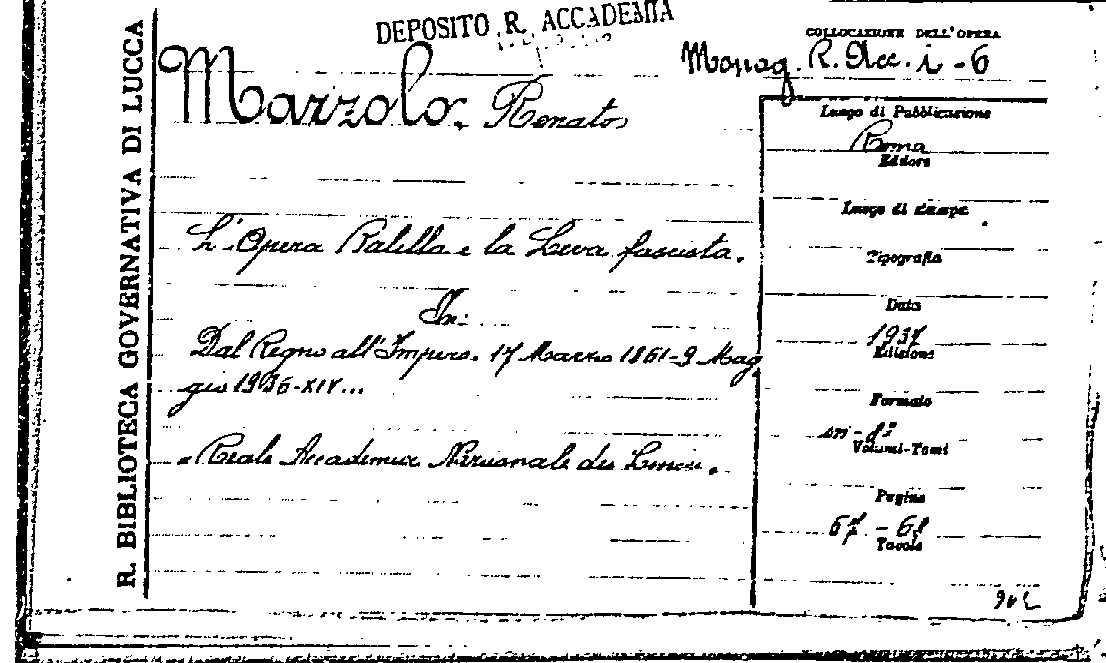 DEPOSITO R. ACCADEMIA
R. BIBLIOTECA GOVERNATIVA DI LUCCA
COLLOCAZIONE DELL'OPERA
Monog. R. Acc. i - 6
Marzolo, Renato
L'Opera Balilla e la Leva fascista.
In:
Dal Regno all'Impero. 17 Marzo 1861-9 Mag
gio 1936-XIV...
Reale Accademia Nazionale dei Lincei.
Luogo di Pubblicazione
Roma
Editore
Luogo di stampa
Tipografia
Data
1937
Edizione
Formato
in-8º
Volumi-Tomi
Pagine
67 - 68
Tavole